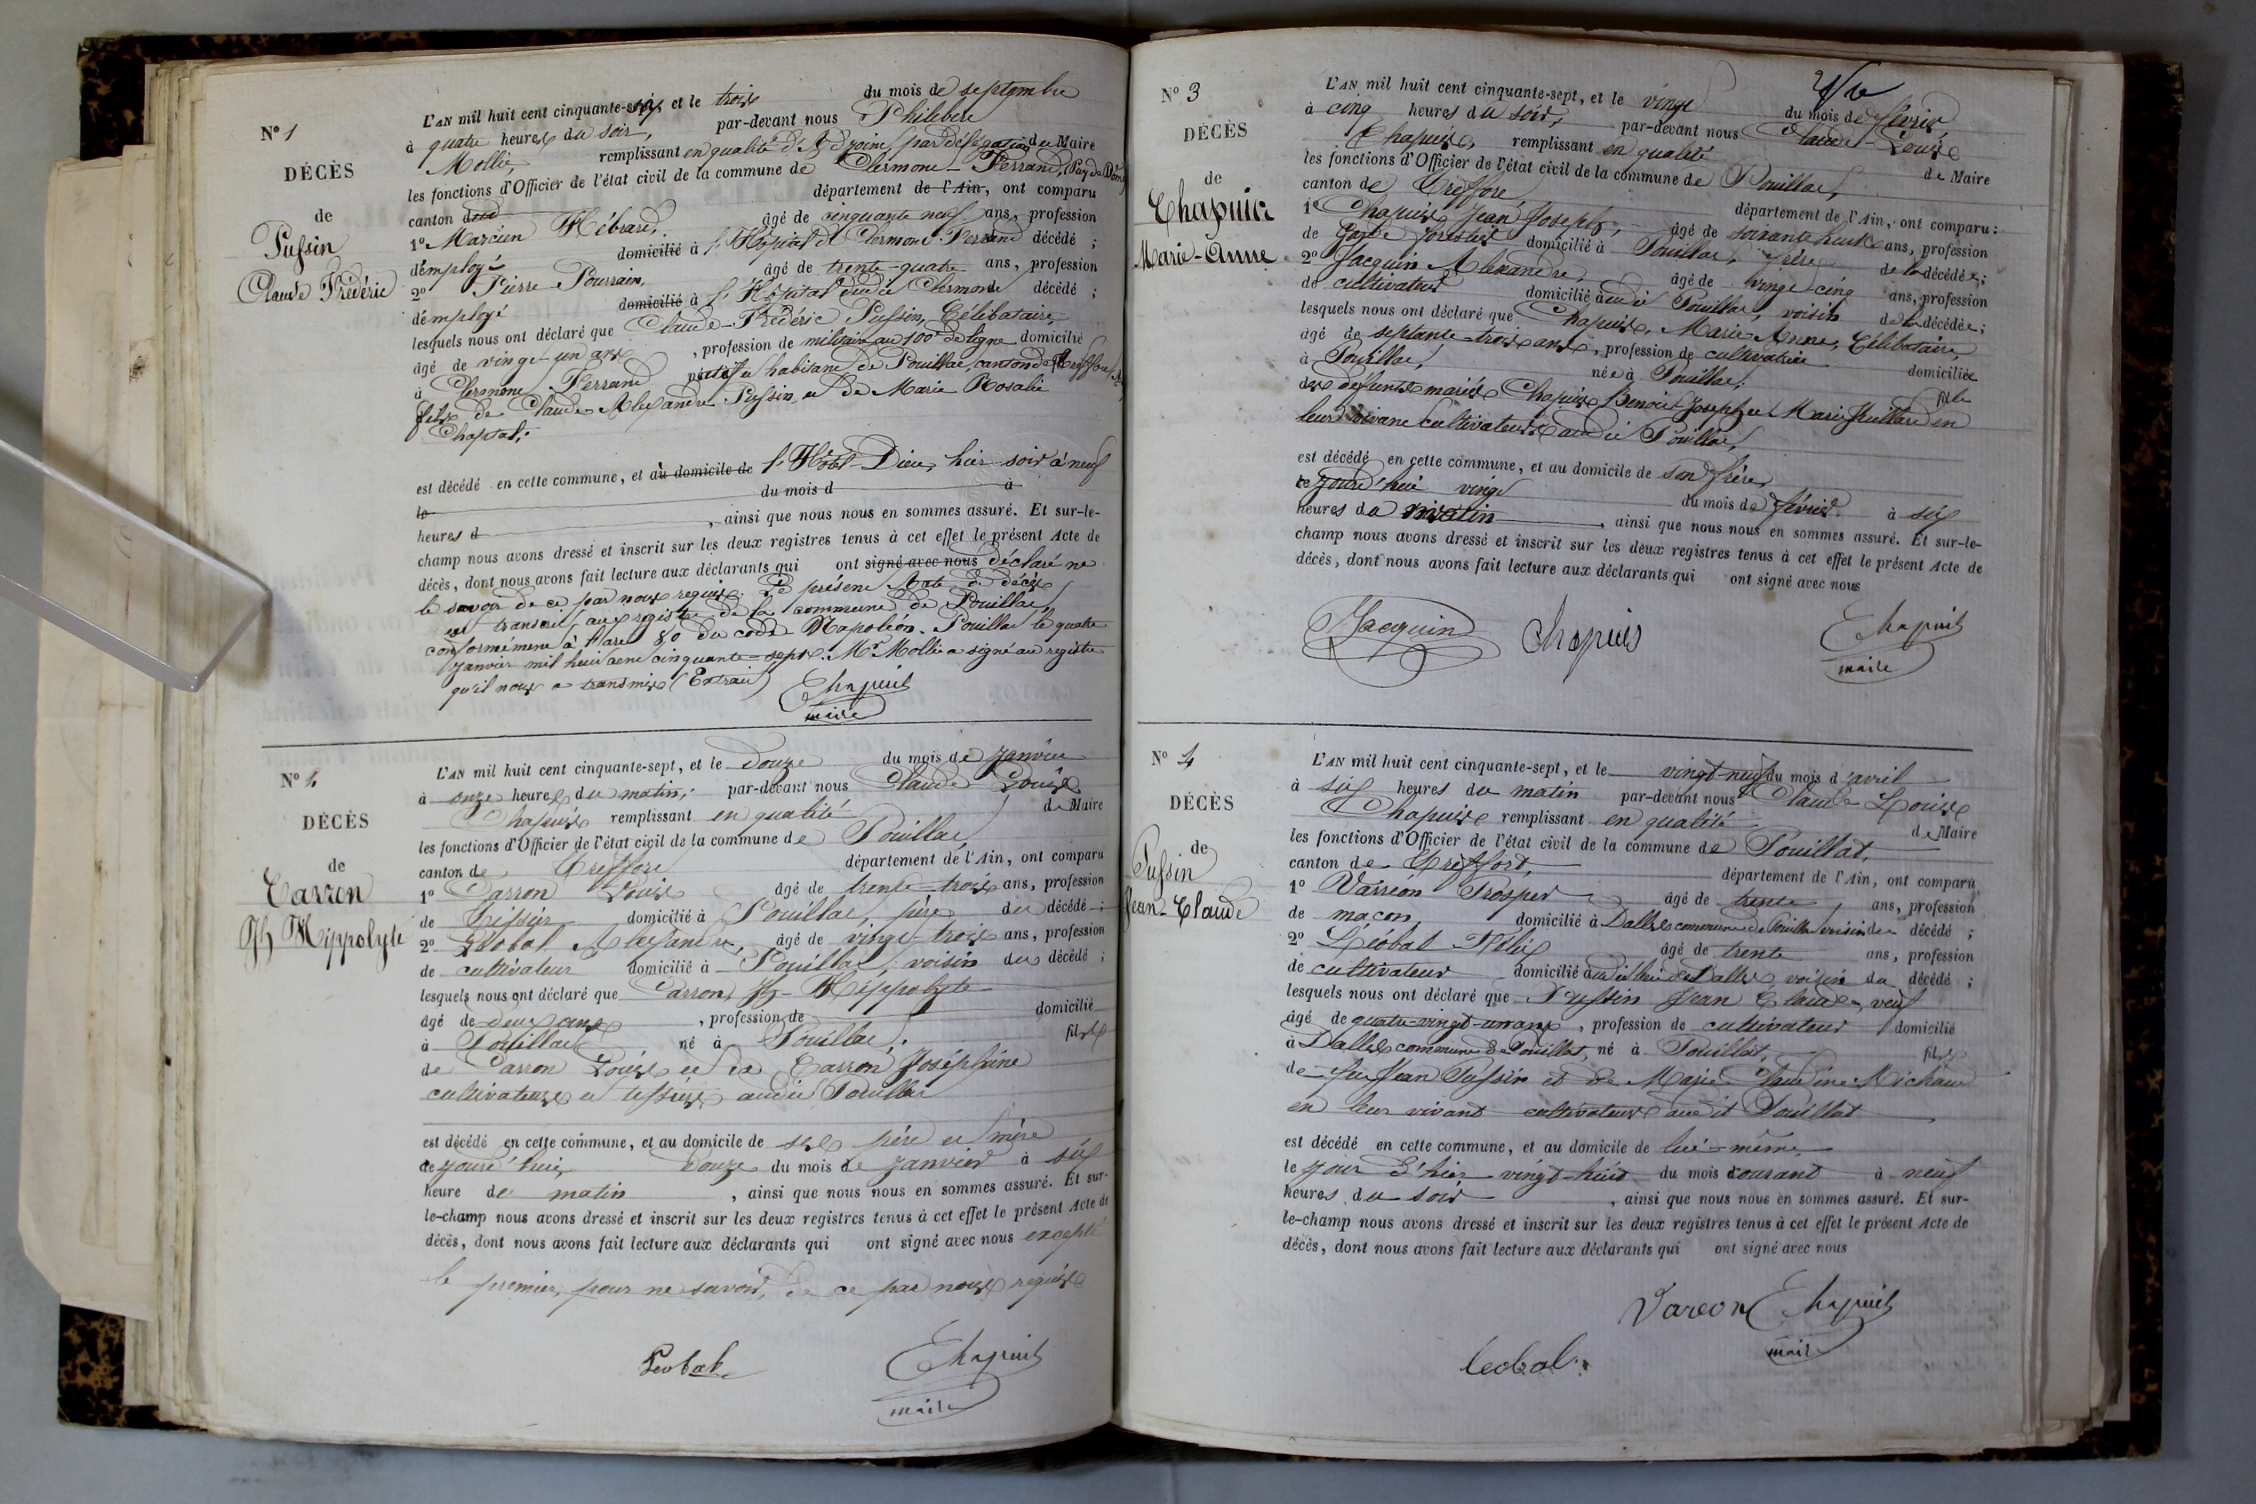 Nº 1
DÉCÈS
de
Pussin
Claude Frédéric
L'AN mil huit cent cinquante-six, et le trois du mois de septembre
à quatre heures du soir, par-devant nous Philibert
Mollie, remplissant en qualité d'Adjoint par délégation du Maire
les fonctions d'Officier de l'état civil de la commune de Clermont-Ferrand, Puy de Dôme
canton dud département de l'Ain, ont comparu
1º Marcien Hébrard, âgé de cinquante neuf ans, profession
d'employé domicilié à l'Hôpital de Clermont Ferrand décédé ;
2º Pierre Poursain, âgé de trente-quatre ans, profession
d'employé domicilié à l'Hôpital dudit Clermont décédé ;
lesquels nous ont déclaré que Claude-Frédéric Pussin, Célibataire,
âgé de vingt-un ans, profession de militaire au 100e de ligne domicilié
à Clermont-Ferrand natif et habitant de Pouillat, canton de Treffort
fils de Claude Alexandre Pussin et de Marie Rosalie
Chapial.
est décédé en cette commune, et au domicile de l'Hôtel-Dieu, hier soir à neuf
le du mois d à
heures d , ainsi que nous nous en sommes assuré. Et sur-le-
champ nous avons dressé et inscrit sur les deux registres tenus à cet effet le présent Acte de
décès, dont nous avons fait lecture aux déclarants qui ont signé avec nous déclaré ne
le savoir de ce par nous requis. Le présent Acte de décès
est transcrit aux registres de la commune de Pouillat,
conformément à l'art 80 du code Napoléon. Pouillat le quatre
janvier mil huit cent cinquante-sept. Mr Mollie a signé au registre
qu'il nous a transmis (Extrait) Chapuis
maire
Nº 2
DÉCÈS
de
Carron
Jh Hippolyte
L'AN mil huit cent cinquante-sept, et le douze du mois de janvier
à onze heures du matin, par-devant nous Claude Louis
Chapuis remplissant en qualité de Maire
les fonctions d'Officier de l'état civil de la commune de Pouillat,
canton de Treffort département de l'Ain, ont comparu
1º Carron Louis âgé de trente-trois ans, profession
de Tissier domicilié à Pouillat, père du décédé ;
2º Léobal Alexandre, âgé de vingt-trois ans, profession
de cultivateur domicilié à Pouillat, voisin du décédé ;
lesquels nous ont déclaré que Carron Jh-Hippolyte
âgé de deux ans, profession de domicilié
à Pouillat né à Pouillat, fils
de Carron Louis et de Carron Joséphine
cultivateurs et tissiers audit Pouillat
est décédé en cette commune, et au domicile de ses père et mère
le jourd'hui, douze du mois de janvier à six
heure du matin , ainsi que nous nous en sommes assuré. Et sur-
le-champ nous avons dressé et inscrit sur les deux registres tenus à cet effet le présent Acte de
décès, dont nous avons fait lecture aux déclarants qui ont signé avec nous excepté
le premier, pour ne savoir, de ce par nous requis
Leobal Chapuis
maire
Nº 3
DÉCÈS
de
Chapuis
Marie-Anne
L'AN mil huit cent cinquante-sept, et le vingt du mois de février
à cinq heures du soir, par-devant nous Claude-Louis
Chapuis, remplissant en qualité de Maire
les fonctions d'Officier de l'état civil de la commune de Pouillat,
canton de Treffort, département de l'Ain, ont comparu :
1º Chapuis Jean Joseph, âgé de soixante huit ans, profession
de Garde forestier domicilié à Pouillat, frère de la décédée ;
2º Jacquin Alexandre, âgé de vingt cinq ans, profession
de cultivateur domicilié audit Pouillat, voisin de la décédée ;
lesquels nous ont déclaré que Chapuis, Marie-Anne, Célibataire,
âgé de septante-trois ans, profession de cultivatrice domiciliée
à Pouillat, née à Pouillat, fille
des défunts mariés Chapuis Benoit-Joseph et Marie Juillard en
leur vivant cultivateurs audit Pouillat,
est décédé en cette commune, et au domicile de son frère,
le jourd'hui vingt du mois de février à six
heures du matin, ainsi que nous nous en sommes assuré. Et sur-le-
champ nous avons dressé et inscrit sur les deux registres tenus à cet effet le présent Acte de
décès, dont nous avons fait lecture aux déclarants qui ont signé avec nous
Jacquin Chapuis Chapuis
maire
Nº 4
DÉCÈS
de
Pussin
Jean-Claude
L'AN mil huit cent cinquante-sept, et le vingt-neuf du mois d'avril
à six heures du matin par-devant nous Claude Louis
Chapuis remplissant en qualité de Maire
les fonctions d'Officier de l'état civil de la commune de Pouillat,
canton de Treffort, département de l'Ain, ont comparu
1º Varréon Prosper âgé de trente ans, profession
de maçon, domicilié à Dalles commune de Pouillat voisin du décédé ;
2º Léobal Félix âgé de trente ans, profession
de cultivateur domicilié audit lieu de Dalles, voisin du décédé ;
lesquels nous ont déclaré que Pussin Jean Claude, veuf
âgé de quatre-vingt-un ans, profession de cultivateur domicilié
à Dalles commune de Pouillat, né à Pouillat, fils
de feu Jean Pussin et de Marie Claudine Michaud
en leur vivant cultivateurs audit Pouillat
est décédé en cette commune, et au domicile de lui-même
le jour d'hier vingt-huit du mois courant à neuf
heures du soir , ainsi que nous nous en sommes assuré. Et sur-
le-champ nous avons dressé et inscrit sur les deux registres tenus à cet effet le présent Acte de
décès, dont nous avons fait lecture aux déclarants qui ont signé avec nous
Vareon Chapuis
maire
Leobal